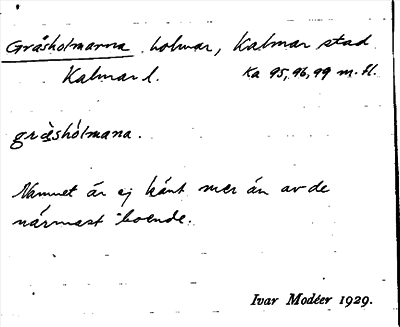 Gråsholmarna holmar, Kalmar stad
Kalmar l. Ka 95,96,99 m.fl.
gråsholmana.
Namnet är ej känt mer än av de
närmast boende.
Ivar Modéer 1929.